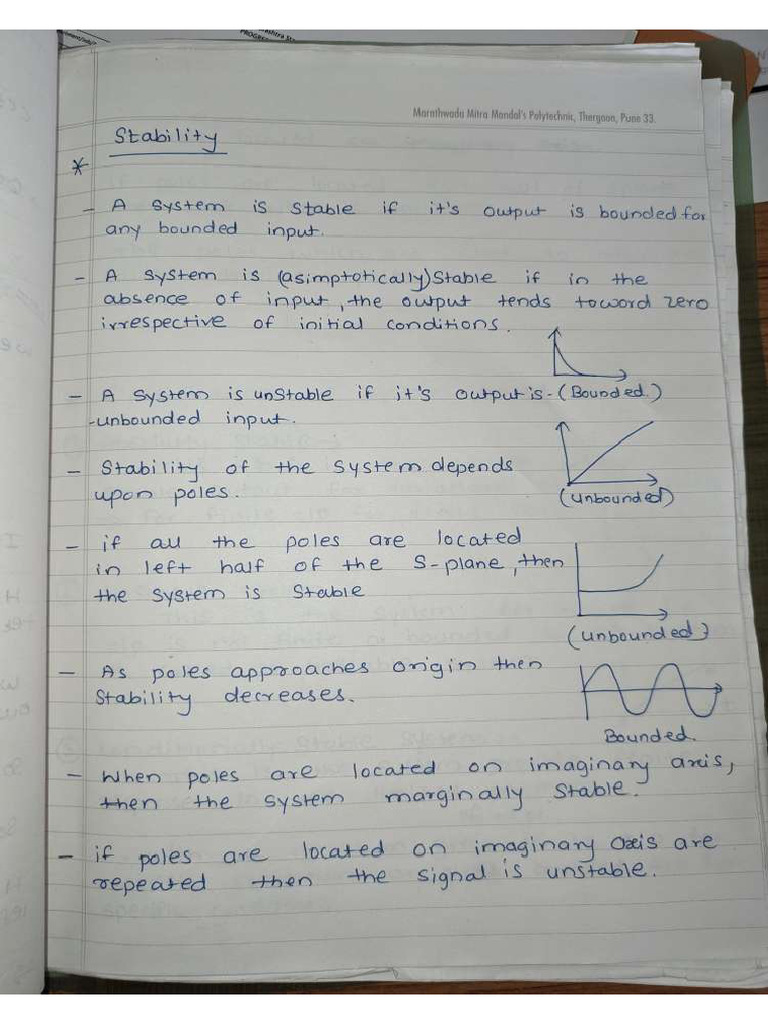 Marathwada Mitra Mandal's Polytechnic, Thergaon, Pune 33.
Stability
*
- A system is stable if it's output is bounded for
any bounded input.
- A system is (asimptotically) stable if in the
absence of input, the output tends toword zero
irrespective of initial conditions.
- A system is unstable if it's output is - (Bounded.)
-unbounded input.
- Stability of the system depends
upon poles.
(Unbounded)
- if all the poles are located
in left half of the S-plane, then
the system is stable
(Unbounded)
- As poles approaches origin then
stability decreases.
Bounded.
- When poles are located on imaginary axis,
then the system marginally stable.
- if poles are located on imaginary axis are
repeated then the signal is unstable.